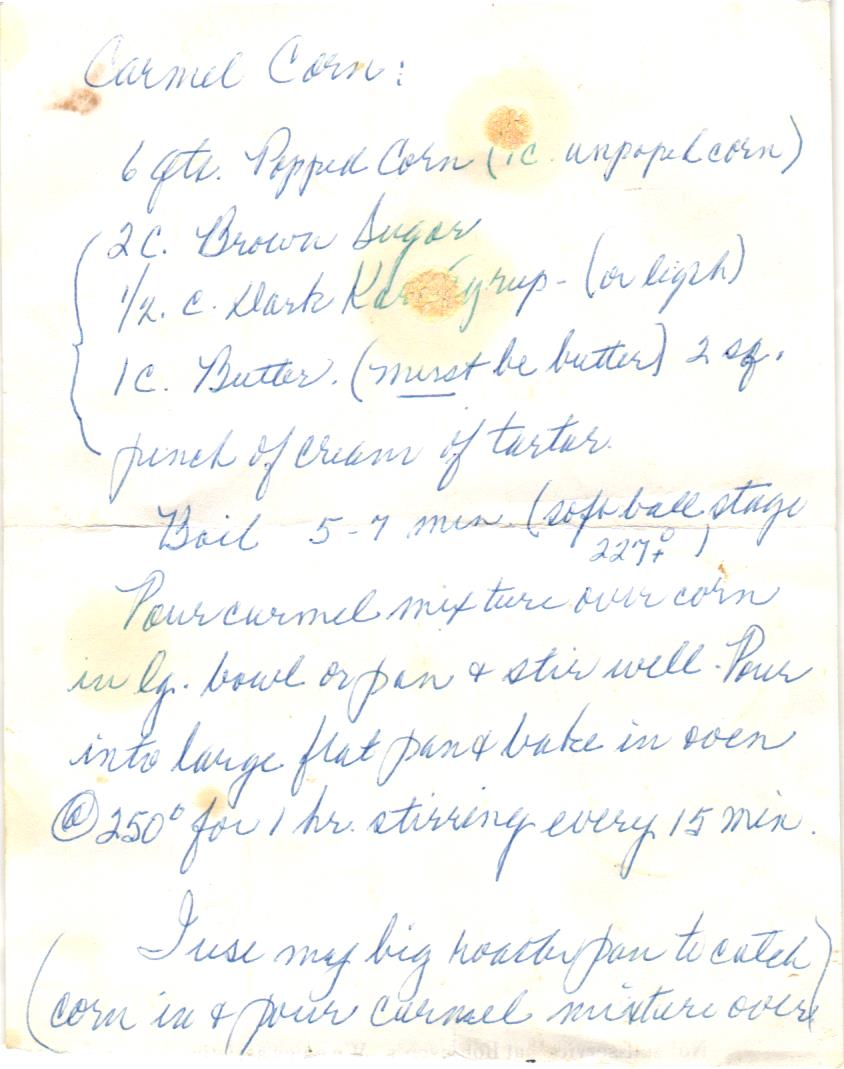 Carmel Corn:
6 qts. Popped Corn (1c. unpoped corn)
2 C. Brown Sugar
1/2. c. Dark Karo Syrup - (or light)
1 C. Butter. (must be butter) 2 sq.
pinch of cream of tartar.
Boil 5-7 min. (soft ball stage
227+° )
Pour curmel mixture over corn
in lg. bowl or pan & stir well. Pour
into large flat pan & bake in oven
@ 250° for 1 hr. stirring every 15 min.
I use my big roaster pan to catch
(corn in & pour curmel mixture over)